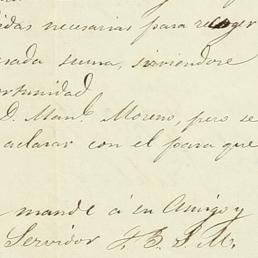 idas necesarias para recoger
esada suma, sirviendose
ortunidad
D. Manl. Moreno, pero se
aclarar con el para que
mande á su Amigo y
Servidor J. B. S. M.